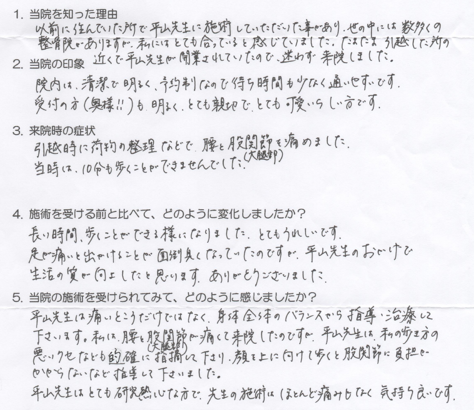 1. 当院を知った理由
以前に住んでいた所で平山先生に施術していただいた事があり、世の中には数多くの
整骨院がありますが、私にはとても合っていると感じていました。たまたま引越した所の
近くで平山先生が開業されていたので、迷わず来院しました。
2. 当院の印象
院内は、清潔で明るく、予約制なので待ち時間も少なく通いやすいです。
受付の方(奥様!!)も明るく、とても親切で、とても可愛いらしい方です。
3. 来院時の症状
引越時に荷物の整理などで、腰と股関節を痛めました。
(大腿部)
当時は、10分も歩くことができませんでした。
4. 施術を受ける前と比べて、どのように変化しましたか?
長い時間、歩くことができる様になりました。とてもうれしいです。
足が痛いと出かけることが面倒臭くなっていたのですが、平山先生のおかげで
生活の質が向上したと思います。ありがとうございました。
5. 当院の施術を受けられてみて、どのように感じましたか?
平山先生は痛いところだけではなく、身体全体のバランスから指導・治療して
下さいます。私は、腰と股関節が痛くて来院したのですが、平山先生は、私の歩き方の
(大腿部)
悪いクセなども的確に指摘して下さり、顔を上に向けて歩くと股関節に負担が
かからないなど指導して下さいました。
平山先生はとても研究熱心な方で、先生の施術はほとんど痛みもなく気持ち良いです。